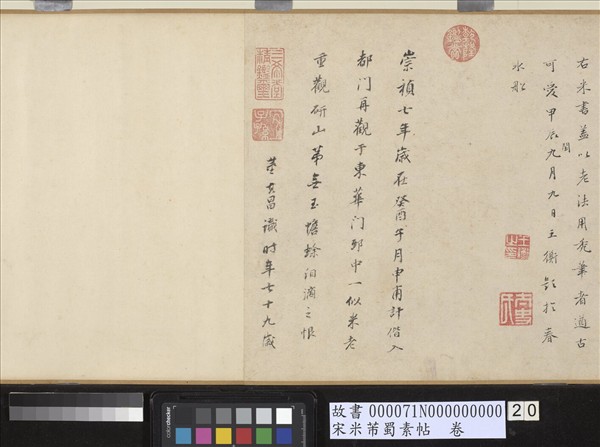 右米書蓋以老法用禿筆者遒古
可愛甲辰閏九月九日王衡題於春
水船
崇禎七年歲在癸酉子月申甫計偕入
都門再觀于東華門邸中一似米老
重觀研山第無玉蟾蜍泪滴之恨
董其昌識時年七十九歲
故書 000071N000000000
20
宋米芾蜀素帖 卷